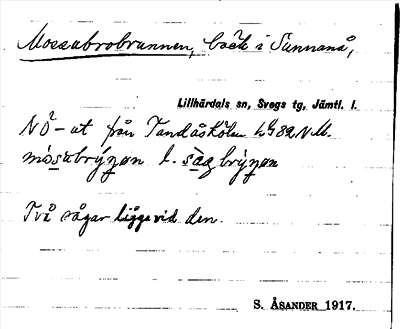 Mossabrobrunnen, bäck i Sunnanå,
Lillhärdals sn, Svegs tg, Jämtl. l.
NÖ-ut från Tandåskölen
mósabrýnən l. sàgbrýnən
Två sågar ligga vid den.
S. ÅSANDER 1917.